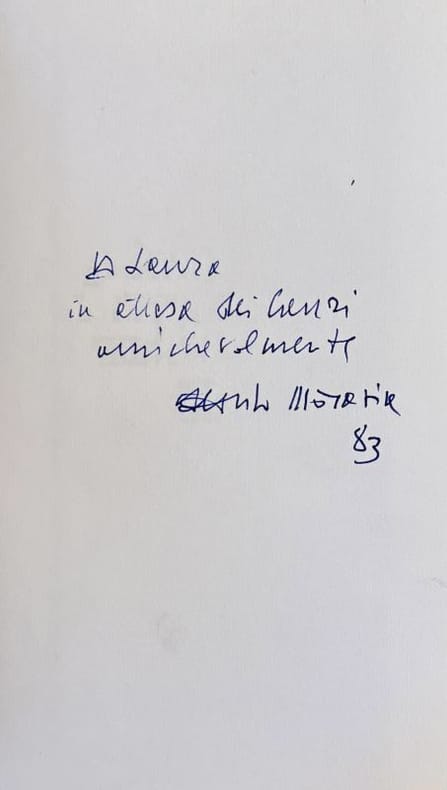 A Laura
in attesa dei
amichevolmente
Alberto Moravia
83